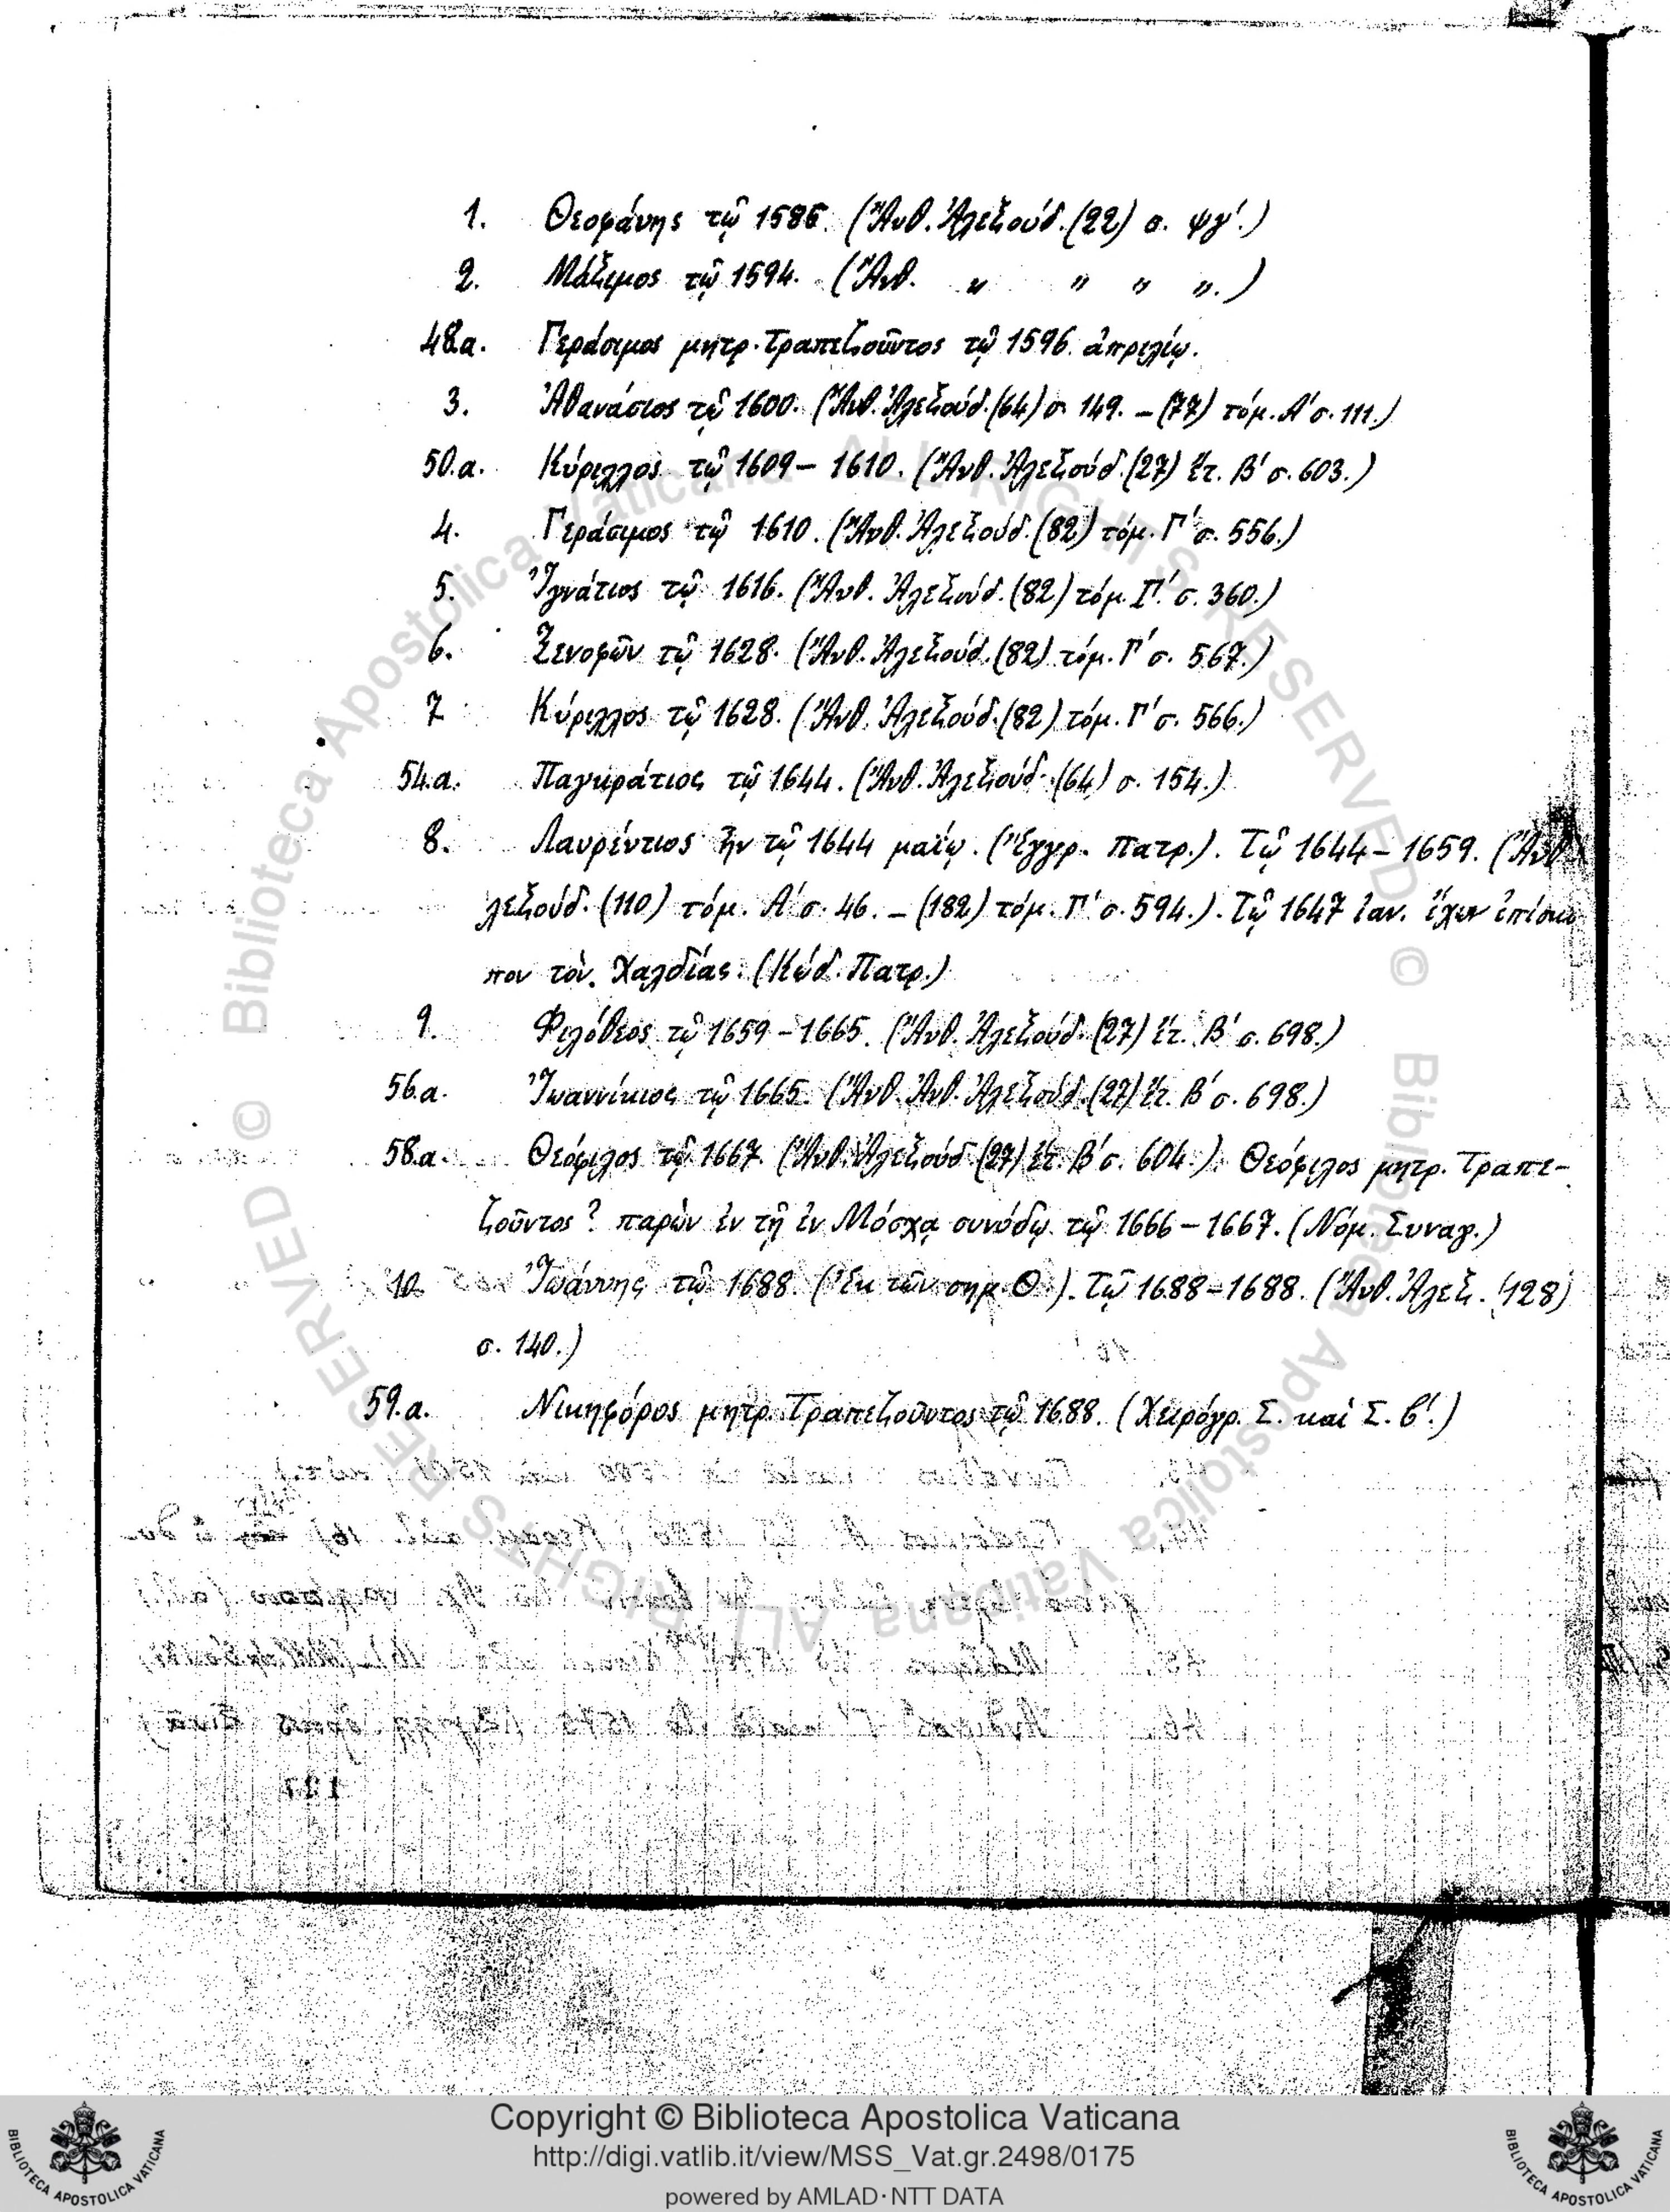 1. Θεοφάνης τῷ 1586. (Ἄνθ. Ἀλεξούδ. (22) σ. ψγ΄.)
2. Μάξιμος τῷ 1594. (Ἄνθ. „ „ „ „.)
48.α. Γεράσιμος μητρ. Τραπεζοῦντος τῷ 1596. ἀπριλίῳ.
3. Ἀθανάσιος τῷ 1600. (Ἄνθ. Ἀλεξούδ. (64) σ. 149. – (77) τόμ. Α΄ σ. 111.)
50.α. Κύριλλος τῷ 1609 – 1610. (Ἄνθ. Ἀλεξούδ. (27) ἔτ. Β΄ σ. 603.)
4. Γεράσιμος τῷ 1610. (Ἄνθ. Ἀλεξούδ. (82) τόμ. Γ΄ σ. 556.)
5. Ἰγνάτιος τῷ 1616. (Ἄνθ. Ἀλεξούδ. (82) τόμ. Γ΄. σ. 360.)
6. Ξενοφῶν τῷ 1628. (Ἄνθ. Ἀλεξούδ. (82) τόμ. Γ΄ σ. 567.)
7 Κύριλλος τῷ 1628. (Ἄνθ. Ἀλεξούδ. (82) τόμ. Γ΄ σ. 566.)
54.α. Παγκράτιος τῷ 1644. (Ἄνθ. Ἀλεξούδ. (64) σ. 154.)
8. Λαυρέντιος ἦν τῷ 1644 μαΐῳ. (Ἔγγρ. Πατρ.). Τῷ 1644 – 1659. (Ἄνθ.
λεξούδ. (110) τόμ. Α΄ σ. 46. – (182) τόμ. Γ΄ σ. 594.). Τῷ 1647 ἰαν. ἔχων ἐπίσκο
πον τὸν Χαλδίας. (Κώδ. Πατρ.)
9. Φιλόθεος τῷ 1659 – 1665. (Ἄνθ. Ἀλεξούδ. (27) ἔτ. Β΄ σ. 698.)
56.α. Ἰωαννίκιος τῷ 1665. (Ἄνθ. Ἄνθ. Ἀλεξούδ. (27) ἔτ. Β΄ σ. 698.)
58.α. Θεόφιλος τῷ 1667. (Ἄνθ. Ἀλεξούδ. (27) ἔτ. Β΄ σ. 604.). Θεόφιλος μητρ. Τραπε-
ζοῦντος? παρὼν ἐν τῇ ἐν Μόσχᾳ συνόδῳ τῷ 1666 – 1667. (Νόμ. Συναγ.)
10. Ἰωάννης τῷ 1688. (Ἐκ τῶν σημ. Θ.). Τῷ 1688 – 1688. (Ἄνθ. Ἀλεξ. (128)
σ. 140.)
59.α. Νικηφόρος μητρ. Τραπεζοῦντος τῷ 1688. (Χειρόγρ. Σ. καὶ Σ. β΄.)
© Biblioteca Apostolica Vaticana ALL RIGHTS RESERVED © Biblioteca Apostolica Vaticana ALL RIGHTS RESERVED
Copyright © Biblioteca Apostolica Vaticana
http://digi.vatlib.it/view/MSS_Vat.gr.2498/0175
powered by AMLAD·NTT DATA
BIBLIOTECA APOSTOLICA VATICANA
BIBLIOTECA APOSTOLICA VATICANA